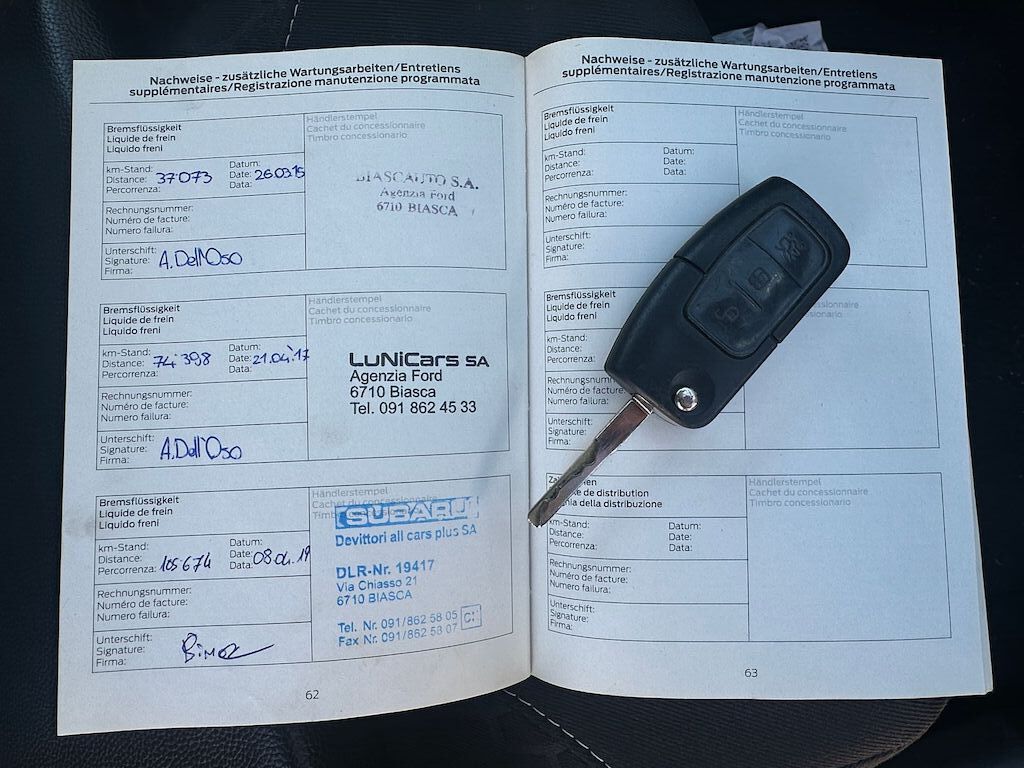 Nachweise - zusätzliche Wartungsarbeiten/Entretiens
supplémentaires/Registrazione manutenzione programmata
Bremsflüssigkeit
Liquide de frein
Liquido freni
Händlerstempel
Cachet du concessionnaire
Timbro concessionario
km-Stand:
Distance: 37'073
Percorrenza:
Datum:
Date: 26.03.15
Data:
BIASCAUTO S.A.
Agenzia Ford
6710 BIASCA
Rechnungsnummer:
Numéro de facture:
Numero failura:
Unterschift:
Signature: A. Dell'Oso
Firma:
Bremsflüssigkeit
Liquide de frein
Liquido freni
Händlerstempel
Cachet du concessionnaire
Timbro concessionario
km-Stand:
Distance: 74'398
Percorrenza:
Datum:
Date: 21.04.17
Data:
LUNICARS SA
Agenzia Ford
6710 Biasca
Tel. 091 862 45 33
Rechnungsnummer:
Numéro de facture:
Numero failura:
Unterschift:
Signature: A. Dell'Oso
Firma:
Bremsflüssigkeit
Liquide de frein
Liquido freni
Händlerstempel
Cachet du concessionnaire
km-Stand:
Distance:
Percorrenza: 105674
Datum:
Date: 08.04.19
Data:
SUBARU
Devittori all cars plus SA
DLR-Nr. 19417
Via Chiasso 21
6710 BIASCA
Tel. Nr. 091/862 58 05
Fax Nr. 091/862 58 07
Rechnungsnummer:
Numéro de facture:
Numero failura:
Unterschift:
Signature:
Firma:
62
Nachweise - zusätzliche Wartungsarbeiten/Entretiens
supplémentaires/Registrazione manutenzione programmata
Bremsflüssigkeit
Liquide de frein
Liquido freni
Händlerstempel
Cachet du concessionnaire
Timbro concessionario
km-Stand:
Distance:
Percorrenza:
Datum:
Date:
Data:
Rechnungsnummer:
Numéro de facture:
Numero failura:
Unterschrift:
Signature:
Firma:
Bremsflüssigkeit
Liquide de frein
Liquido freni
km-Stand:
Distance:
Percorrenza:
Numéro de facture:
Numero failura:
Unterschift:
Signature:
Firma:
de distribution
della distribuzione
Händlerstempel
Cachet du concessionnaire
Timbro concessionario
km-Stand:
Distance:
Percorrenza:
Datum:
Date:
Data:
Rechnungsnummer:
Numéro de facture:
Numero failura:
Unterschrift:
Signature:
Firma:
63